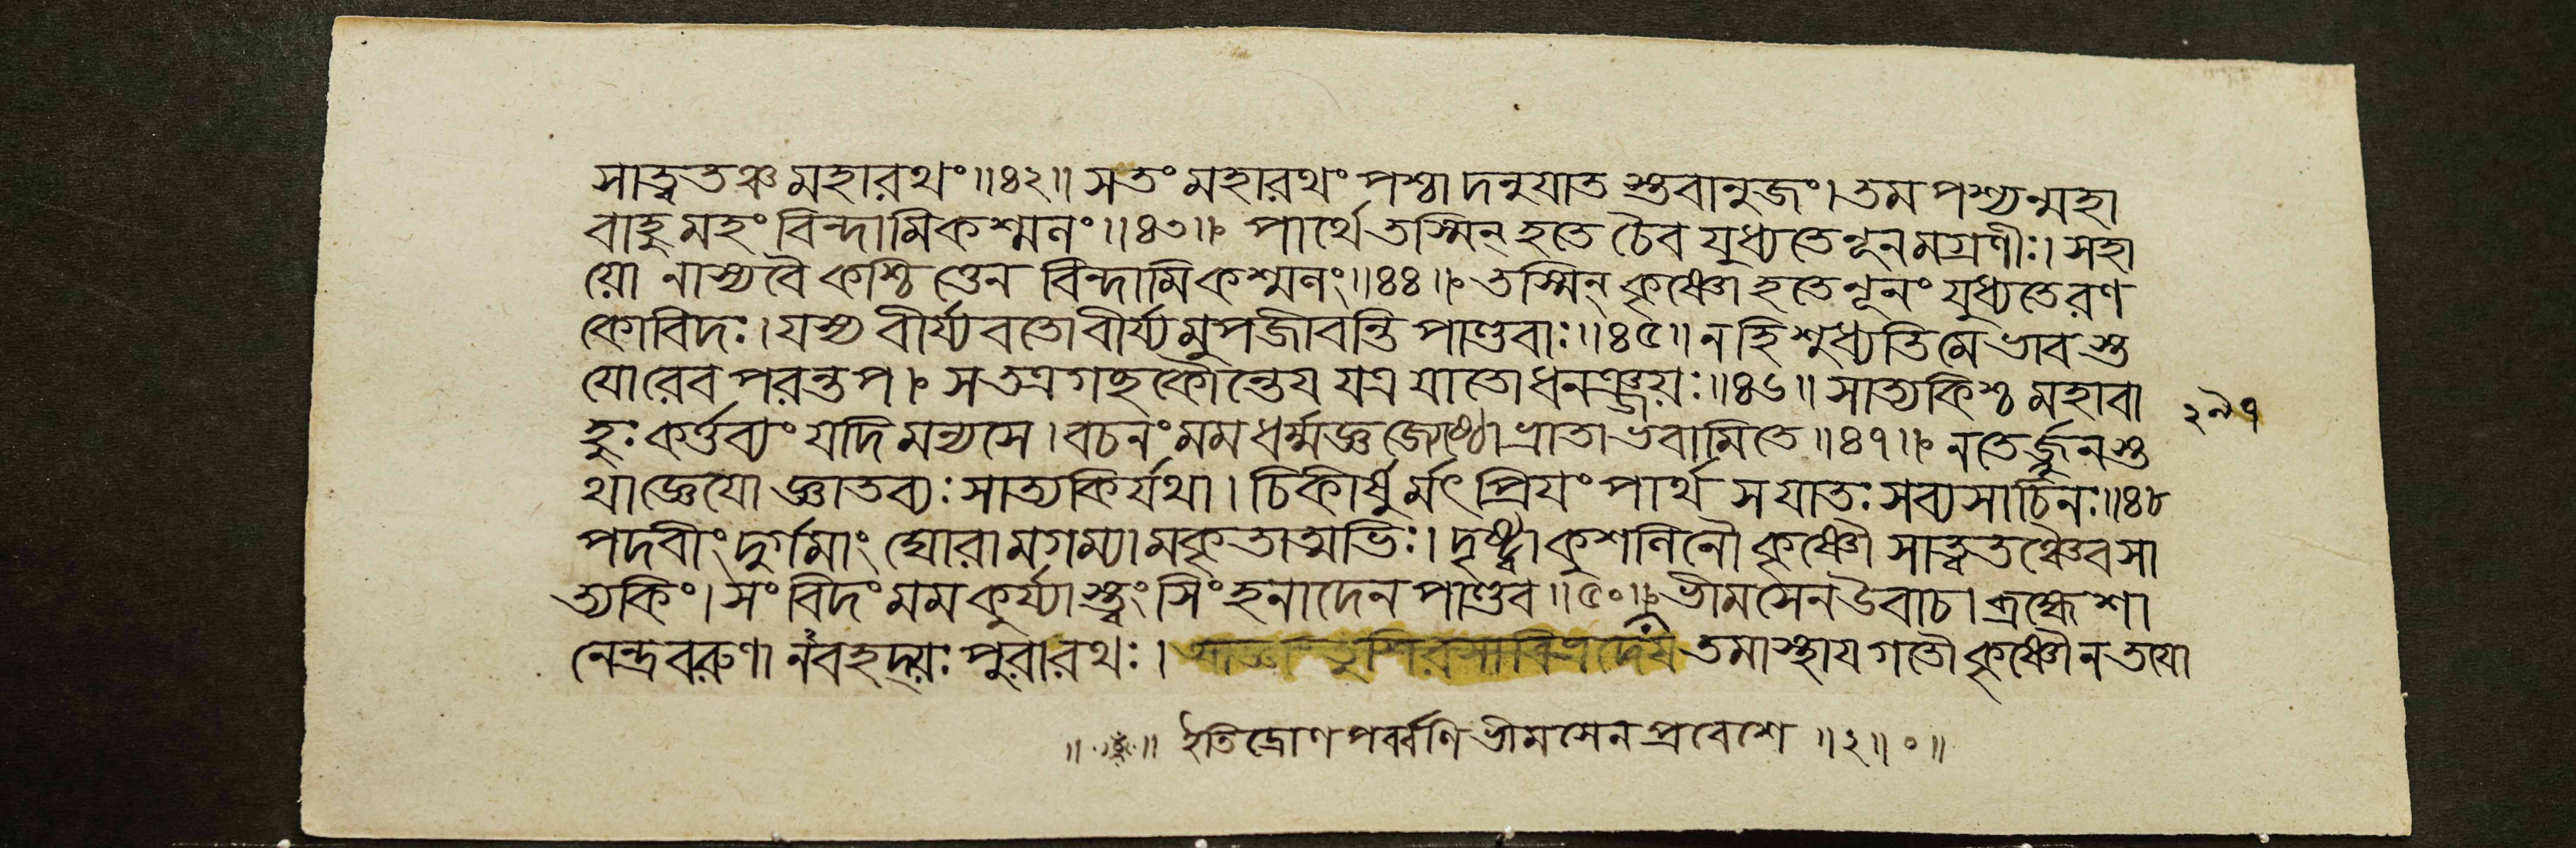 সাত্বতঞ্চ মহারথং ॥৪২॥ স তং মহারথং পশ্চা দনুযাত স্তবানুজং। তম পশ্যন্মহা
বাহু মহং বিন্দামি কশ্মলং ॥৪৩॥ পার্থে তস্মিন্ হতে চৈব যুধ্যতে নূনমগ্রণীঃ। সহা
যো নাস্য বৈ কশ্চি ত্তেন বিন্দামি কশ্মলং ॥৪৪॥ তস্মিন্ কৃষ্ণো হতে নূনং যুধ্যতে রণ
কোবিদঃ। যস্য বীর্য্যবতো বীর্য্য মুপজীবন্তি পাণ্ডবাঃ ॥৪৫॥ ন হি শুধ্যতি মে ভাব স্ত
যোরেব পরন্তপ। স তত্র গচ্ছ কৌন্তেয যত্র যাতো ধনঞ্জয়ঃ ॥৪৬॥ সাত্যকিশ্চ মহাবা
হুঃ কর্ত্তব্যং যদি মন্যসে। বচনং মম ধর্ম্মজ্ঞ জ্যেষ্ঠো ভ্রাতা ভবামি তে ॥৪৭॥ ন তের্জ্জুন স্ত
থা জ্ঞেযো জ্ঞাতব্যঃ সাত্যকির্যথা। চিকীর্ষু র্মৎ প্রিযং পার্থ স যাতঃ সব্যসাচিনঃ ॥৪৮
পদবীং দুর্গমাং ঘোরা মগম্যা মকৃতাত্মভিঃ। দৃষ্ট্বা কুশলিনৌ কৃষ্ণৌ সাত্বতঞ্চৈব সা
ত্যকিং। সংবিদং মম কুর্য্যা স্ত্বং সিংহনাদেন পাণ্ডব ॥৫০॥ ভীমসেন উবাচ। ব্রহ্মেশা
নেন্দ্র বরুণা নবহদ্যঃ পুরা রথঃ। তমাস্থায গতৌ কৃষ্ণৌ ন তযো
২৯৭
ইতি দ্রোণ পর্ব্বণি ভীমসেন প্রবেশে ॥২॥०॥